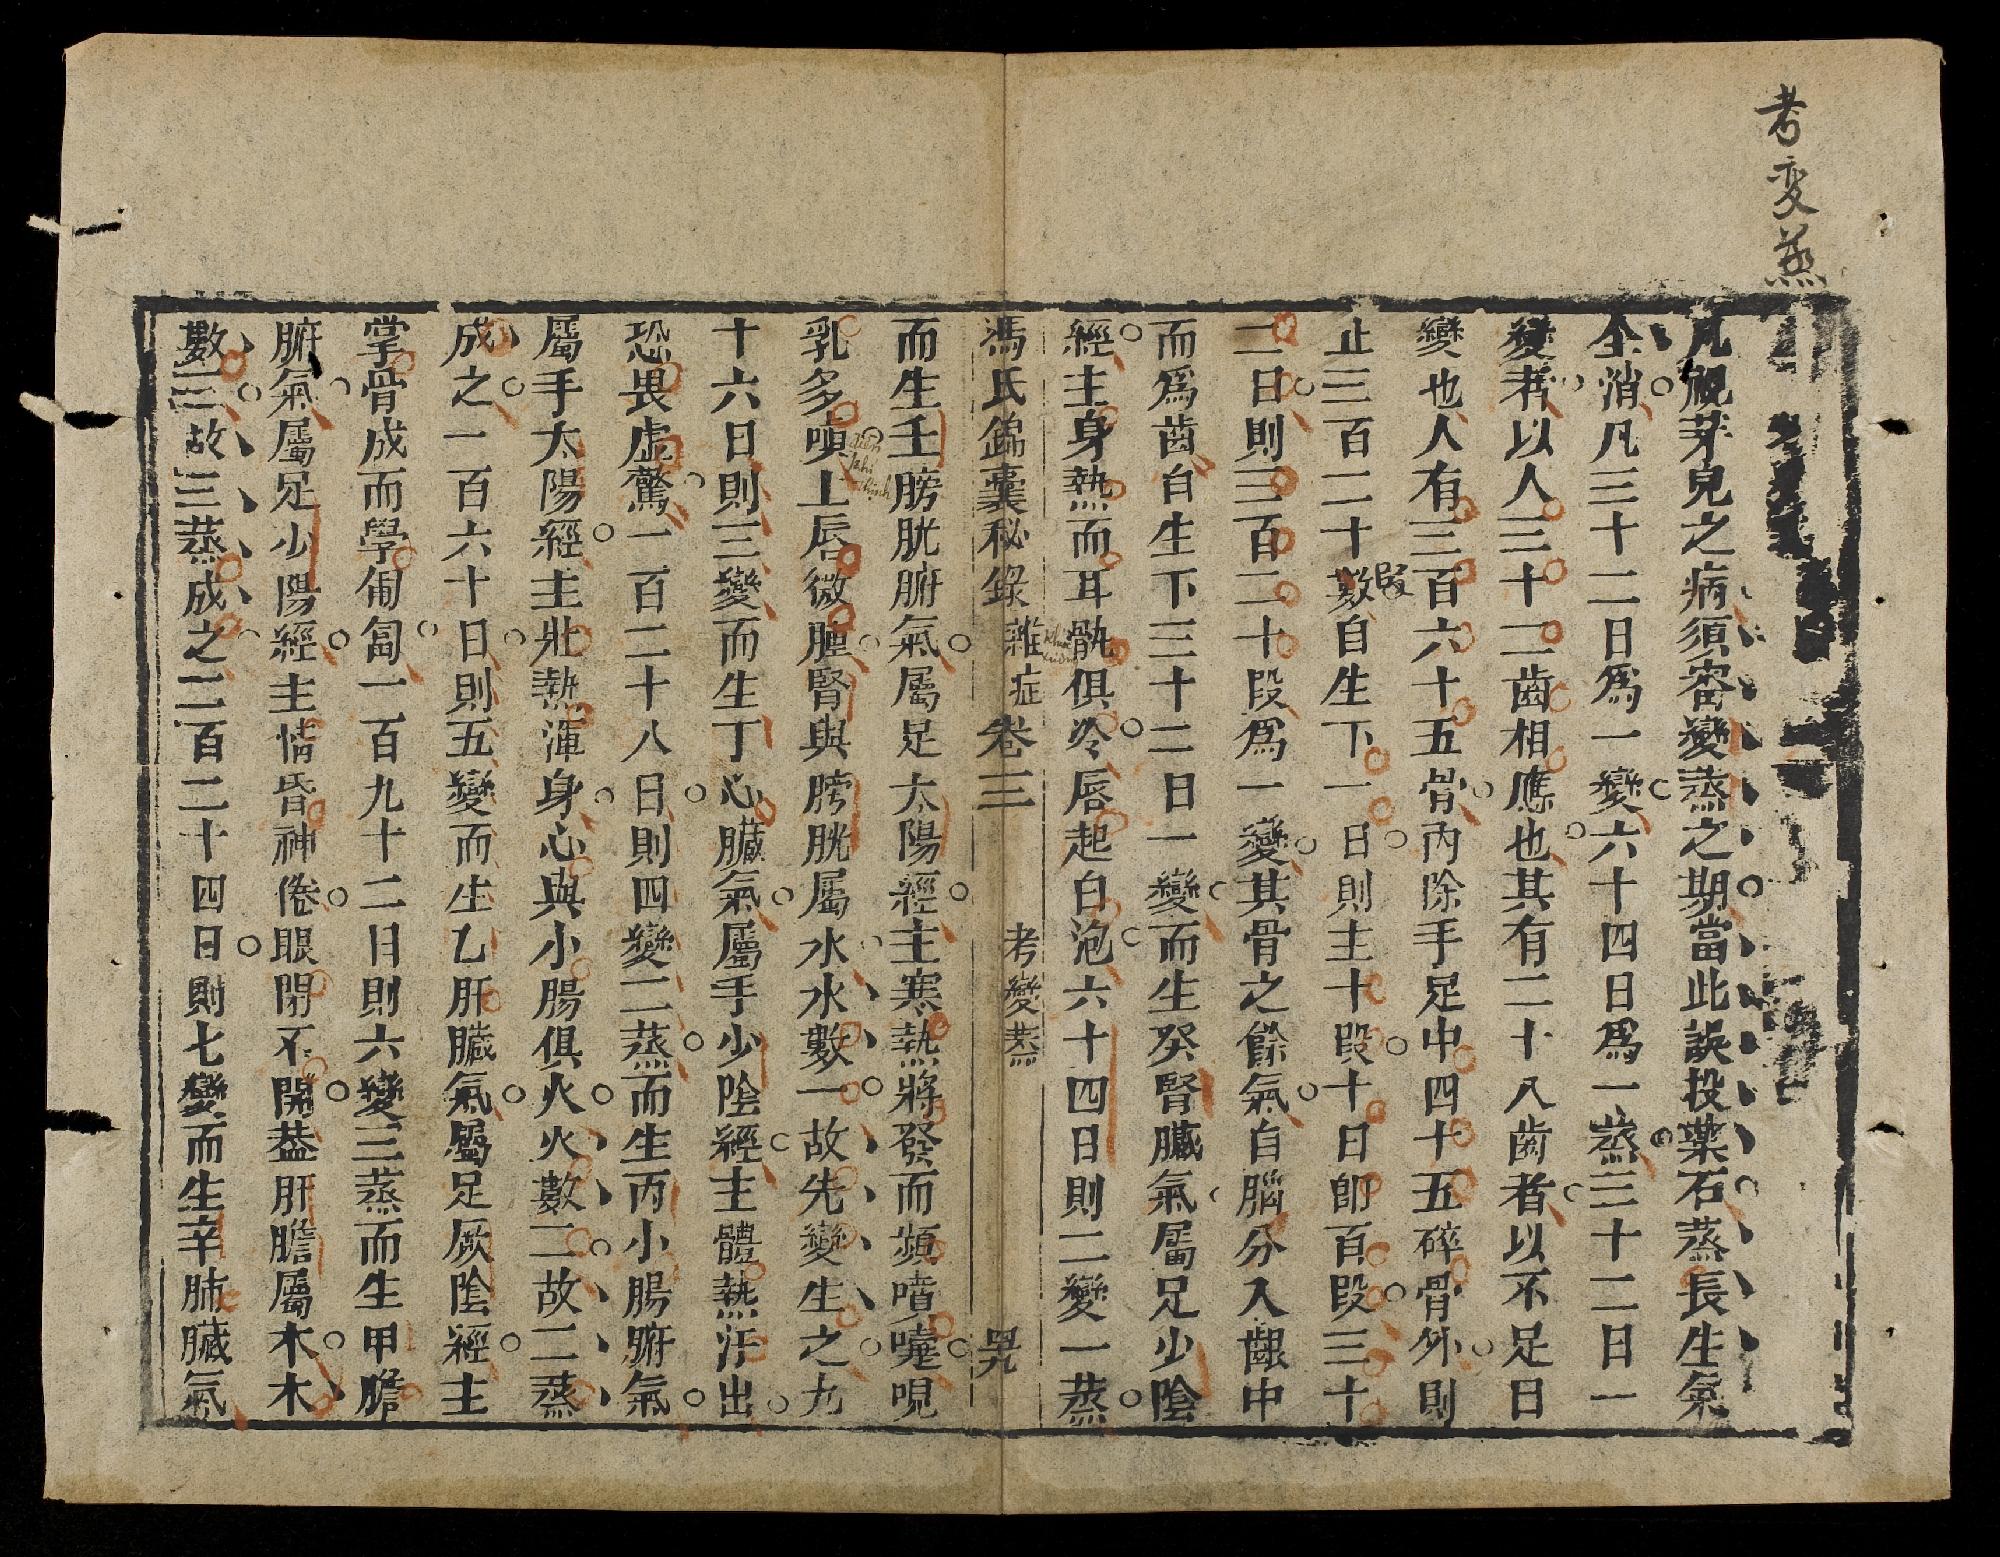 考变蒸
凡視芽兒之病須審變蒸之期當此誤投藥石蒸長生氣
全消凡三十二日爲一變六十四日爲一蒸三十二日一
變者以人三十二齒相應也其有二十八齒者以不足日
變也人有三百六十五骨內除手足中四十五碎骨外則
止三百二十數自生下一日則主十段十日即百段三十
段
二日則三百二十段爲一變其骨之餘氣自腦分入齦中
而爲齒自生下三十二日一變而生癸腎臟氣屬足少陰
經主身熱而耳骩俱冷唇起白泡六十四日則二變一蒸
馮氏錦囊秘錄 雜症 卷三 考變蒸
而生壬膀胱腑氣屬足太陽經主寒熱將發而頻噴嚏哯
乳多嗔上唇微腫腎與膀胱屬水水數一故先變生之九
十六日則三變而生丁心臟氣屬手少陰經主體熱汗出
恐畏虛驚一百二十八日則四變二蒸而生丙小腸腑氣
屬手太陽經主壯熱渾身心與小腸俱火火數二故二蒸
成之一百六十日則五變而生乙肝臟氣屬足厥陰經主
掌骨成而學匍匐一百九十二日則六變三蒸而生甲膽
腑氣屬足少陽經主情昏神倦眼閉不開蓋肝膽屬木木
數三故三蒸成之二百二十四日則七變而生辛肺臟氣